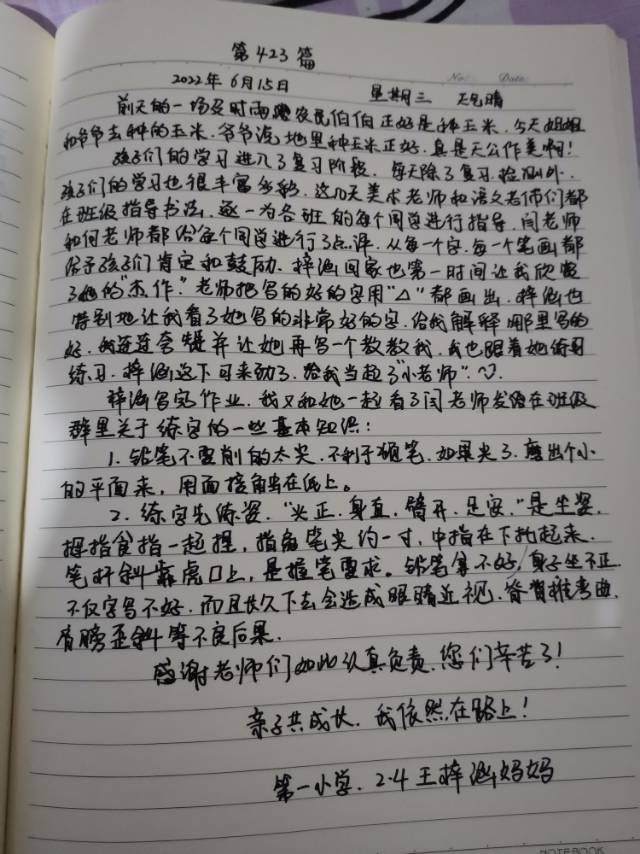 第423篇
No. Date.
2022年6月15日 星期三 天气晴
前天的一场及时雨农民伯伯正好是种玉米.今天姐姐
和爷爷去种的玉米.爷爷说地里种玉米正好.真是天公作美啊!
孩子们的学习进入了复习阶段.每天除了复习.检测外.
孩子们的学习也很丰富多彩.这几天美术老师和语文老师们都
在班级指导书法,逐一为各班的每个同学进行指导.闫老师
和何老师都给每个同学进行了点评.从每一个字.每一个笔画都
给予孩子们肯定和鼓励.梓涵回家也第一时间让我欣赏
了她的"杰作."老师把写的好的字用"△"都画出.梓涵也
特别地让我看了她写的非常好的字.给我解释哪里写的
好.我连连夸赞并让她再写一个教教我.我也跟着她练习
练习.梓涵这下可来劲了.给我当起了"小老师".
梓涵写完作业.我又和她一起看了闫老师发给在班级
群里关于练字的一些基本知识:
1.铅笔不要削的太尖.不利于顿笔.如果尖了.磨出个小
的平面来,用面接触在纸上。
2.练字先练姿."头正.身直.臂开.足安."是坐姿.
拇指食指一起捏,指离笔尖约一寸,中指在下托起来.
笔杆斜靠虎口上,是握笔要求。铅笔拿不好,身子坐不正.
不仅字写不好.而且长久下去会造成眼睛近视.脊背椎弯曲.
肩膀歪斜等不良后果.
感谢老师们如此认真负责.您们辛苦了!
亲子共成长.我依然在路上!
第一小学.2.4王梓涵妈妈
NOTEBOOK